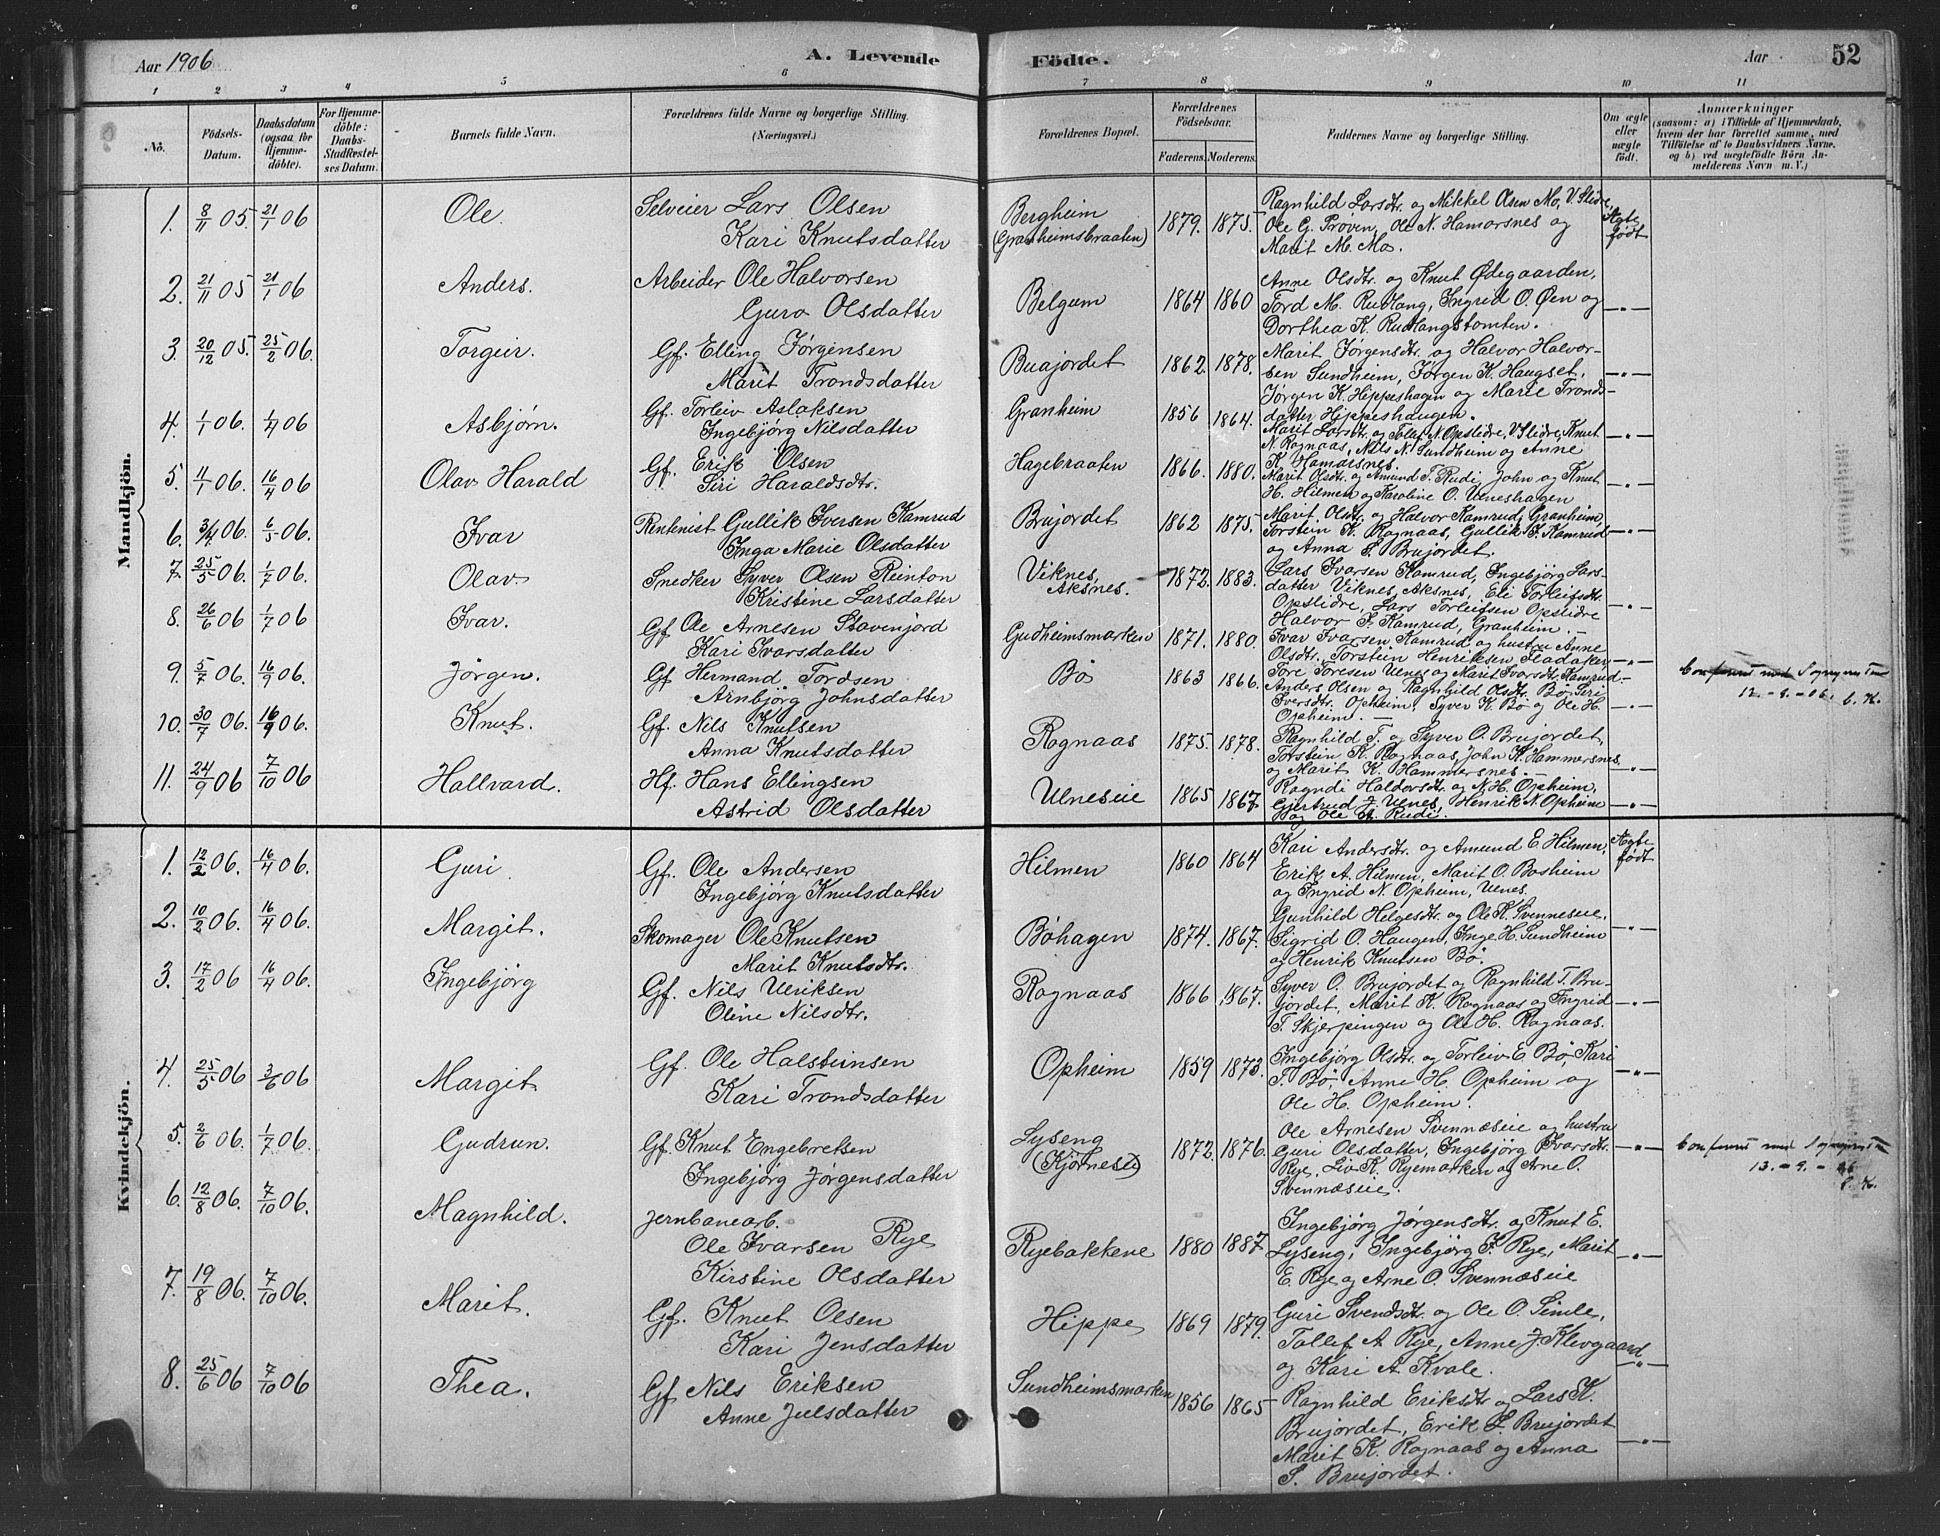 Aar 1906 A. Levende Födte. Aar 52
1 2 3 4 5 6 7 8 9 10 11
No. Födsels-Datum. Daabsdatum (ogsaa for Hjemmedöbte). For Hjemmedöbte: Daabs-Stadfæstelses Datum. Barnets fulde Navn. Forældrenes fulde Navne og borgerlige Stilling. (Næringsvei.) Forældrenes Bopæl. Forældrenes Födselsaar. Faderens. Moderens. Faddernes Navne og borgerlige Stilling. Om ægte eller uægte födt. Anmærkninger (saasom: a) i Tilfælde af Hjemmedaab, hvem der har forrettet samme, med Tilföielse af to Daabsvidners Navne, og b) ved uægtefödte Börn Anmelderens Navn m. V.)
Mandkjön.
1. 8/11 05. 21/1 06 Ole. Selveier Lars Olsen
Kari Knutsdatter
Bergheim
(Granheimsbraaten)
1879. 1875.
Ragnhild Larsdtr. og Mikkel Olsen Mo, V. Slidre,
Ole G. Prøven, Ole N. Hamarsnes og
Marit M. Mo.
Ægte
født
2. 21/11 05 21/1 06 Anders. Arbeider Ole Halvorsen
Guro Olsdatter
Belgum 1864 1860
Anne Olsdtr. og Knut Ødegaarden,
Tord M. Rudlang, Ingrid O. Øen og
Dorthea K. Rudlangstomten.
—"—
3. 20/12 05. 25/2 06. Torgeir. Gf. Elling Jørgensen
Marit Trondsdatter
Buajordet 1862. 1878.
Marit Jørgensdtr. og Halvor Halvor-
sen Sundheim, Jørgen K. Haugset,
Jørgen K. Hippeshagen og Marie Tronds-
datter Hippeshaugen.
—"—
4. 1/1 06. 1/4 06 Asbjørn. Gf. Torleiv Aslaksen
Ingebjørg Nilsdatter
Granheim 1856 1864.
Marit Larsdtr. og Tollef N. Opslidre, V. Slidre, Knut
N. Rognaas, Nils N. Sundheim og Anne
K. Hamarsnes.
—"—
5. 4/1 06. 16/4 06 Olav Harald Gf. Erik Olsen
Siri Haraldsdtr.
Hagebraaten 1866. 1880.
Marit Olsdtr. og Amund T. Rudi, John og Knut
H. Hilmen og Karoline O. Ulneshagen
—"—
6. 3/4 06. 6/5 06. Ivar Rentenist Gullik Iversen Kamrud
Inga Marie Olsdatter
Brujordet 1862 1875.
Marit Olsdtr. og Halvor Kamrud, Granheim,
Torstein K. Rognaas, Gullik I. Kamrud
og Anna S. Brujordet.
—"—
7. 25/5 06. 1/7 06. Olav Snedker Syver Olsen Reinton
Kristine Larsdatter
Viknes,
Aksnes.
1872. 1883.
Lars Ivarsen Kamrud, Ingebjørg Lars-
datter Viknes, Aksnes, Eli Torleifsdtr.
Opslidre, Lars Torleifsen Opslidre
Halvor I. Kamrud, Granheim.
—"—
8. 26/6 06 1/7 06 Ivar. Gf Ole Arnesen Stavenjord
Kari Ivarsdatter
Gudheimsmarken 1871. 1880.
Ivar Ivarsen Kamrud og hustru Anne
Olsdtr. Torstein Henriksen Fladaker
Tore Toresen Ulnes og Marit Ivarsdtr. Kamrud
—"—
9. 5/7 06. 16/9 06. Jørgen. Gf Hermand Tordsen
Arnbjørg Johnsdatter
Bø 1863 1866.
Anders Olsen og Ragnhild Olsdtr. Bø, Siri
Iversdtr. Opheim, Syver K. Bø og Ole H.
Opheim.
—"—
12.-9.-06.
10. 30/7 06. 16/9 06. Knut. Gf. Nils Knutsen
Anna Knutsdatter
Rognaas 1875. 1878.
Ragnhild T. og Syver O. Brujordet,
Torstein K. Rognaas, John K. Hammersnes
og Marit K. Hammersnes.
—"—
11. 24/9 06 7/10 06 Hallvard. Hf. Hans Ellingsen
Astrid Olsdatter
Ulneseie 1865 1867.
Ragndi Haldorsdtr. og N. H. Opheim,
Gjertrud J. Ulnes, Henrik N. Opheim
og Ole A. Rudi.
—"—
Kvindekjön.
1. 12/2 06. 16/4 06. Guri Gf. Ole Andersen
Ingebjørg Knutsdatter
Hilmen 1860 1864
Kari Andersdtr. og Amund E. Hilmen,
Erik A. Hilmen, Marit O. Bosheim
og Ingrid N. Opheim, Ulnes.
Ægte
født
2. 10/2 06. 16/4 06. Margit. Skomager Ole Knutsen
Marit Knutsdtr.
Bøhagen 1874. 1867.
Gunhild Helgesdtr. og Ole K. Svenneseie,
Sigrid O. Haugen, Inge H. Sundheim
og Henrik Knutsen Bø.
—"—
3. 17/2 06 16/4 06. Ingebjørg Gf. Nils Ulriksen
Oline Nilsdtr.
Rognaas 1866 1867.
Syver O. Brujordet og Ragnhild T. Bru-
jordet, Marit K. Rognaas og Ingrid
T. Skjerpingen og Ole H. Rognaas.
—"—
4. 25/5 06 3/6 06 Margit Gf. Ole Halsteinsen
Kari Trondsdatter
Opheim 1859 1873.
Ingebjørg Olsdtr. og Torleiv E. Bø, Kari
T. Bø, Anne H. Opheim og
Ole H. Opheim.
—"—
5. 2/6 06. 1/7 06. Gudrun. Gf. Knut Engebretsen
Ingebjørg Jørgensdatter
Lyseng
(Kjørneseie)
1872. 1876.
Ole Arnesen Svennæseie og hustru
Guri Olsdatter, Ingebjørg Ivarsdtr.
Rye, Liv K. Ryemarken og Arne O.
Svennæseie.
—"—
13.-9.-06
6. 12/8 06. 7/10 06. Magnhild. Jernbanearb.
Ole Ivarsen Rye
Kirstine Olsdatter
Ryebakkene 1880 1887.
Ingebjørg Jørgensdtr. og Knut E.
Lyseng, Ingebjørg I. Rye, Marit
E. Rye og Arne O. Svennæseie
—"—
7. 19/8 06. 7/10 06. Marit. Gf. Knut Olsen
Kari Jensdatter
Hippe 1869 1879.
Guri Svendsdtr. og Ole O. Simle,
Tollef A. Rye, Anne J. Klevgaard
og Kari A. Kvale.
—"—
8. 25/6 06 7/10 06 Thea. Gf Nils Eriksen
Anne Julsdatter
Sundheimsmarken 1856 1865
Ragnhild Eriksdtr. og Lars K.
Brujordet, Erik L. Brujordet
Marit K. Rognaas og Anna
S. Brujordet.
—"—